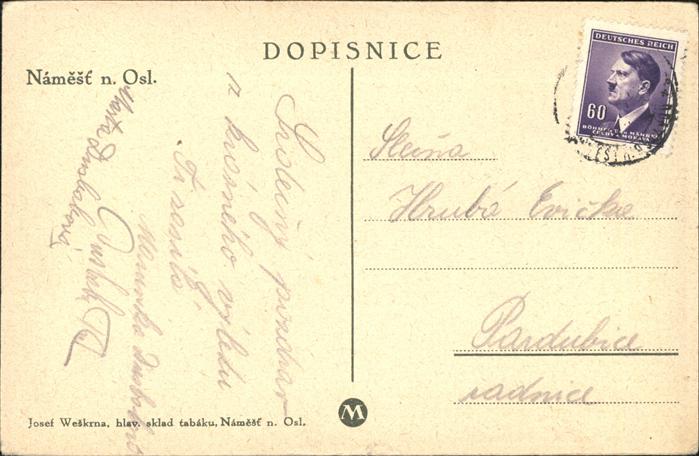 DOPISNICE
Náměšť n. Osl.
DEUTSCHES REICH
60
BÖHMEN UND MÄHREN
ČECHY A MORAVA
Srdečný pozdrav
z krásného výletu
Ti posílá
Marunka
Slečna
Hrubá Evička
Pardubice
radnice
Josef Weškrna, hlav. sklad tabáku, Náměšť n. Osl.
M